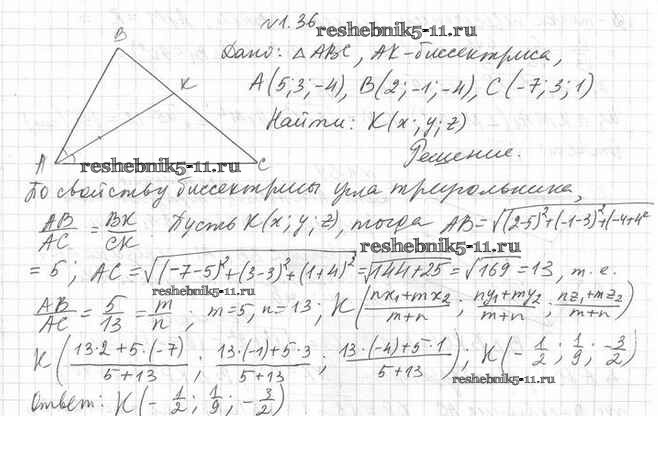 №1.36
reshebnik5-11.ru
B
Дано: △ ABC, AK - биссектриса,
K
A(5; 3; -4), B(2; -1; -4), C(-7; 3; 1)
Найти: K(x; y; z)
A
C
reshebnik5-11.ru
Решение.
По свойству биссектрисы угла треугольника,
AB/AC = BK/CK. Пусть K(x; y; z), тогда AB = √((2-5)²+(-1-3)²+(-4+4²
= 5; AC = √((-7-5)²+(3-3)²+(1+4)²) = √(144+25) = √169 = 13, т.е.
reshebnik5-11.ru
AB/AC = 5/13 = m/n; m=5, n=13; K((nx₁+mx₂)/(m+n); (ny₁+my₂)/(m+n); (nz₁+mz₂)/(m+n))
K((13·2+5·(-7))/(5+13); (13·(-1)+5·3)/(5+13); (13·(-4)+5·1)/(5+13)); K(-1/2; 1/9; -3/2)
reshebnik5-11.ru
Ответ: K(-1/2; 1/9; -3/2)